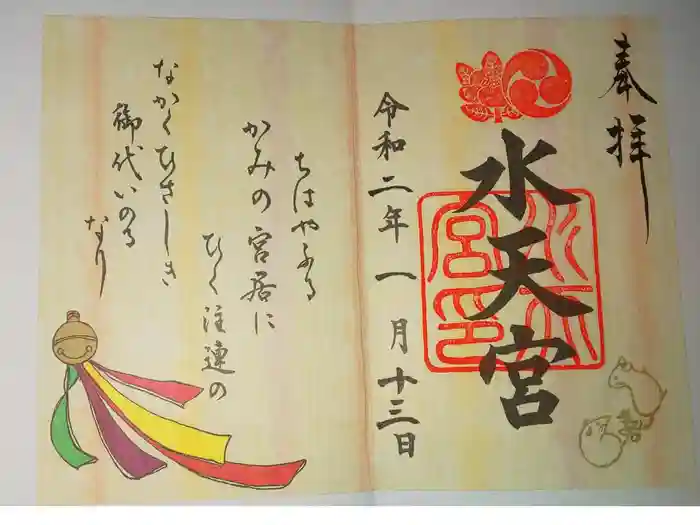 奉拝
水天宮
水天宮印
令和二年一月十三日
ちはやふる
かみの宮居に
ひく注連の
なかくひさしき
御代いのる
なり